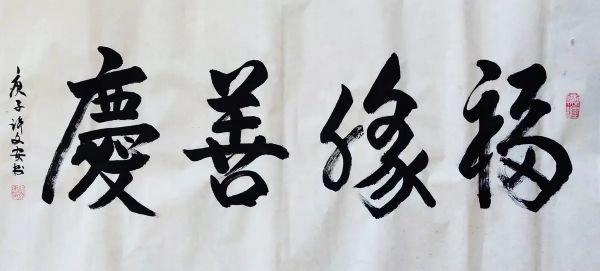 福缘善慶
庚子许文安书